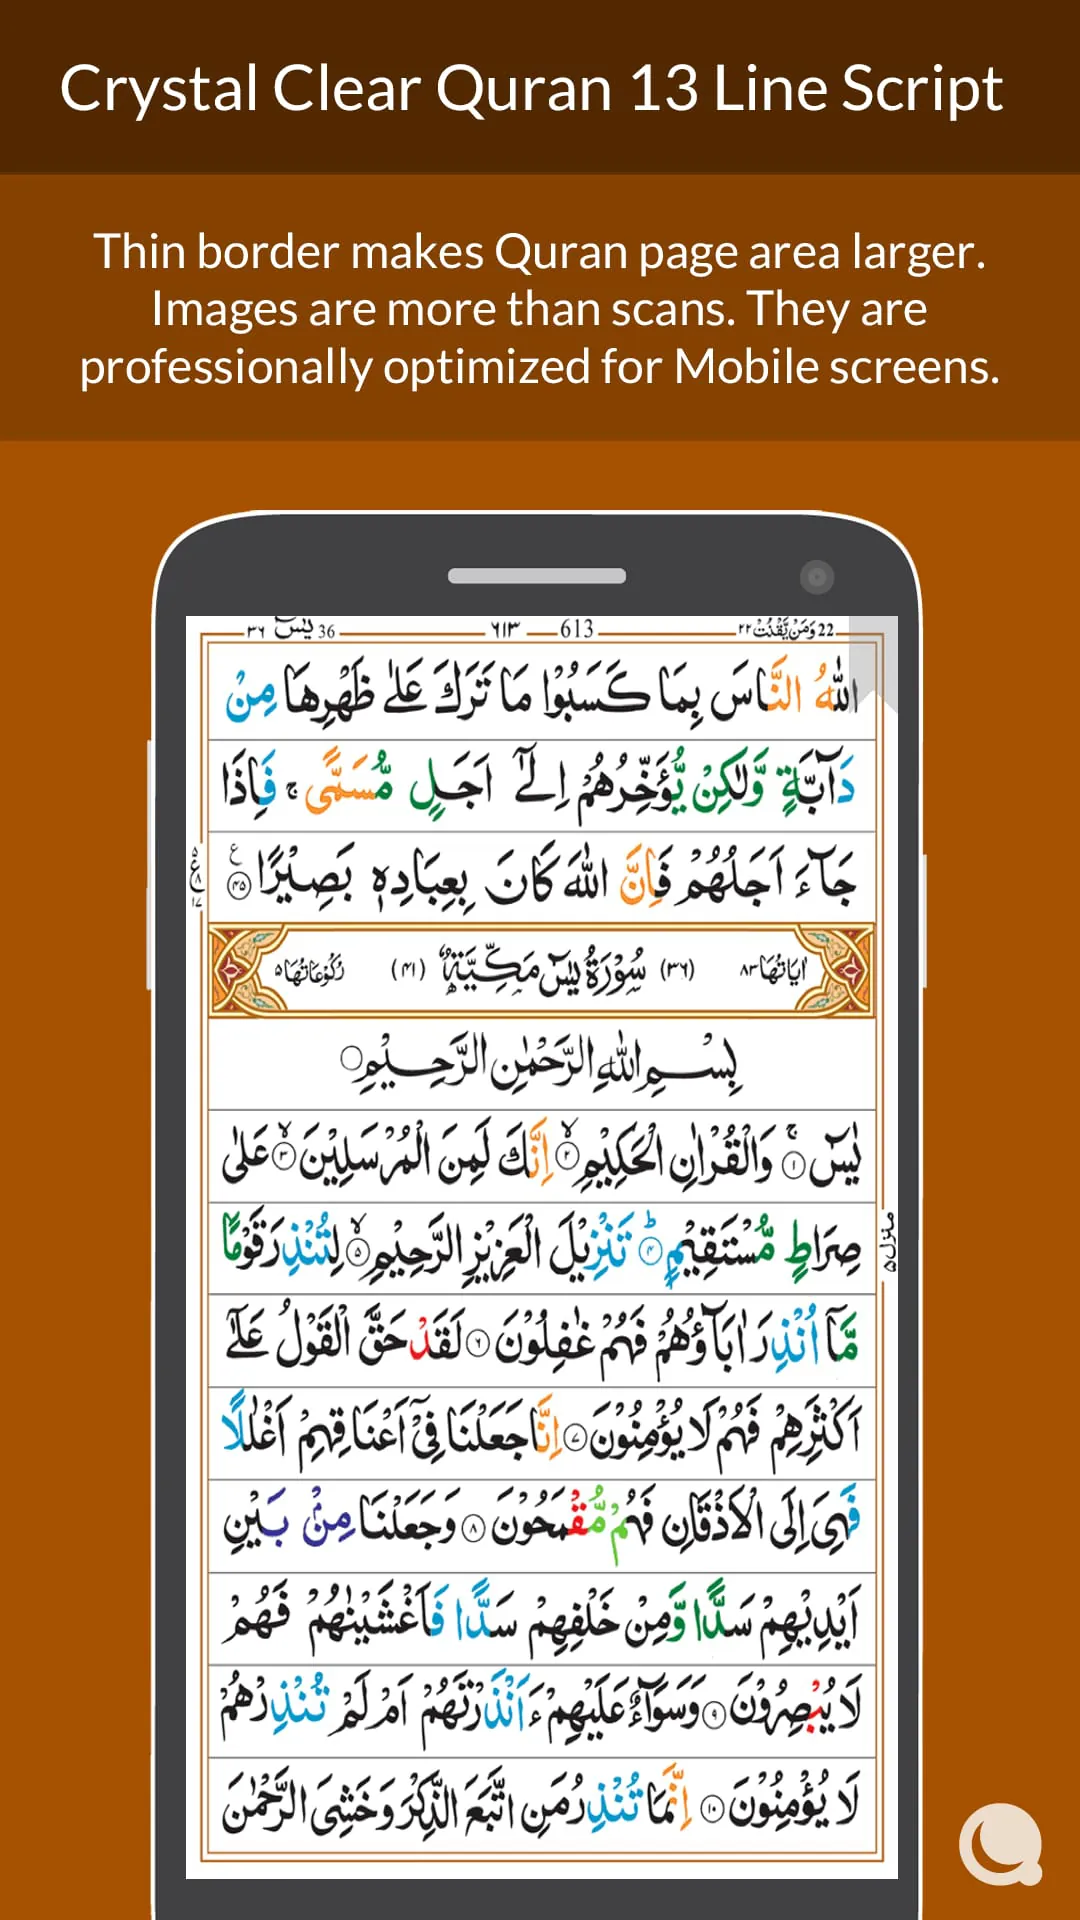 Crystal Clear Quran 13 Line Script
Thin border makes Quran page area larger.
Images are more than scans. They are
professionally optimized for Mobile screens.
22 وَمَنْ يَّقْنُتْ ٢٢
613 ٦١٣
36 يٰسٓ ٣٦
اللّٰهُ النَّاسَ بِمَا كَسَبُوْا مَا تَرَكَ عَلٰى ظَهْرِهَا مِنْ
دَآبَّةٍ وَّلٰكِنْ يُّؤَخِّرُهُمْ اِلٰٓى اَجَلٍ مُّسَمًّى ۚ فَاِذَا
جَآءَ اَجَلُهُمْ فَاِنَّ اللّٰهَ كَانَ بِعِبَادِهٖ بَصِيْرًا ﴿٤٥﴾ ع
اٰيَاتُهَا ٨٣ (٣٦) سُوْرَةُ يٰسٓ مَكِّيَّةٌ (٤١) رُكُوْعَاتُهَا ٥
بِسْمِ اللّٰهِ الرَّحْمٰنِ الرَّحِيْمِ
يٰسٓ ۚ﴿١﴾ وَالْقُرْاٰنِ الْحَكِيْمِ ۙ﴿٢﴾ اِنَّكَ لَمِنَ الْمُرْسَلِيْنَ ۙ﴿٣﴾ عَلٰى
صِرَاطٍ مُّسْتَقِيْمٍ ؕ﴿٤﴾ تَنْزِيْلَ الْعَزِيْزِ الرَّحِيْمِ ۙ﴿٥﴾ لِتُنْذِرَ قَوْمًا
مَّآ اُنْذِرَ اٰبَآؤُهُمْ فَهُمْ غٰفِلُوْنَ ﴿٦﴾ لَقَدْ حَقَّ الْقَوْلُ عَلٰٓى
اَكْثَرِهِمْ فَهُمْ لَا يُؤْمِنُوْنَ ﴿٧﴾ اِنَّا جَعَلْنَا فِيْٓ اَعْنَاقِهِمْ اَغْلٰلًا
فَهِيَ اِلَى الْاَذْقَانِ فَهُمْ مُّقْمَحُوْنَ ﴿٨﴾ وَجَعَلْنَا مِنْۢ بَيْنِ
اَيْدِيْهِمْ سَدًّا وَّمِنْ خَلْفِهِمْ سَدًّا فَاَغْشَيْنٰهُمْ فَهُمْ
لَا يُبْصِرُوْنَ ﴿٩﴾ وَسَوَآءٌ عَلَيْهِمْ ءَاَنْذَرْتَهُمْ اَمْ لَمْ تُنْذِرْهُمْ
لَا يُؤْمِنُوْنَ ﴿١٠﴾ اِنَّمَا تُنْذِرُ مَنِ اتَّبَعَ الذِّكْرَ وَخَشِيَ الرَّحْمٰنَ
منزل ٥
٥ ع ٨ ١٧